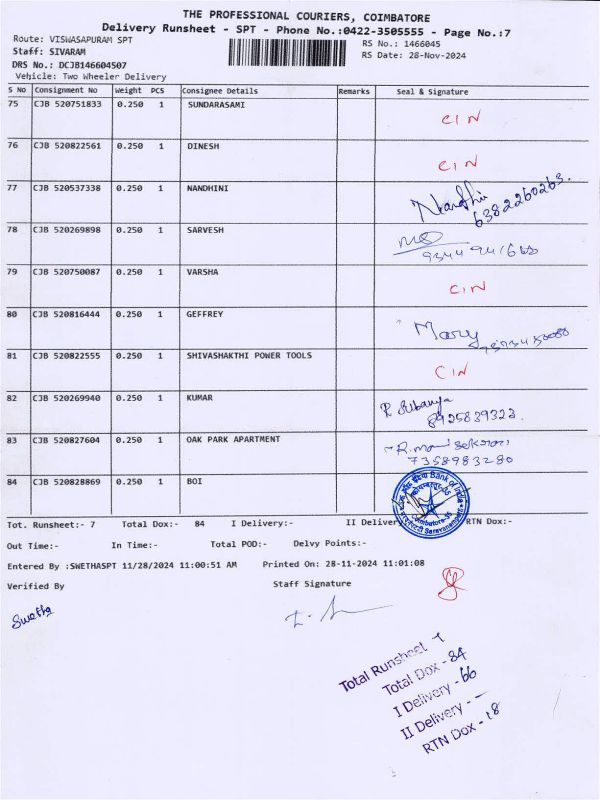 THE PROFESSIONAL COURIERS, COIMBATORE
Delivery Runsheet - SPT - Phone No.:0422-3505555 - Page No.:7
Route: VISWASAPURAM SPT
RS No.: 1466045
Staff: SIVARAM
RS Date: 28-Nov-2024
DRS No.: DCJB146604507
Vehicle: Two Wheeler Delivery
S No Consignment No Weight PCS Consignee Details Remarks Seal & Signature
75 CJB 520751833 0.250 1 SUNDARASAMI CIN
76 CJB 520822561 0.250 1 DINESH CIN
77 CJB 520537338 0.250 1 NANDHINI Nandhini 6382260263.
78 CJB 520269898 0.250 1 SARVESH
79 CJB 520750087 0.250 1 VARSHA CIN
80 CJB 520816444 0.250 1 GEFFREY Mary
81 CJB 520822555 0.250 1 SHIVASHAKTHI POWER TOOLS CIN
82 CJB 520269940 0.250 1 KUMAR 8925839323.
83 CJB 520827604 0.250 1 OAK PARK APARTMENT 7358983280
84 CJB 520828869 0.250 1 BOI Bank of India
Tot. Runsheet:- 7 Total Dox:- 84 I Delivery:- II Delivery:- RTN Dox:-
Out Time:- In Time:- Total POD:- Delvy Points:-
Entered By :SWETHASPT 11/28/2024 11:00:51 AM Printed On: 28-11-2024 11:01:08
Verified By Staff Signature
Swetha
Total Runsheet -
Total Dox - 84
I Delivery - 66
II Delivery - -
RTN Dox - 18